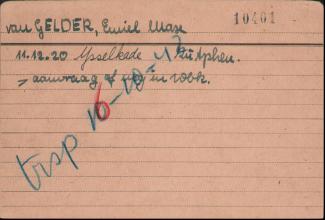 van GELDER, Emiel Max
10401
11.12.20 Ysselkade Zutphen.
aanvraag
trsp 16-10-43